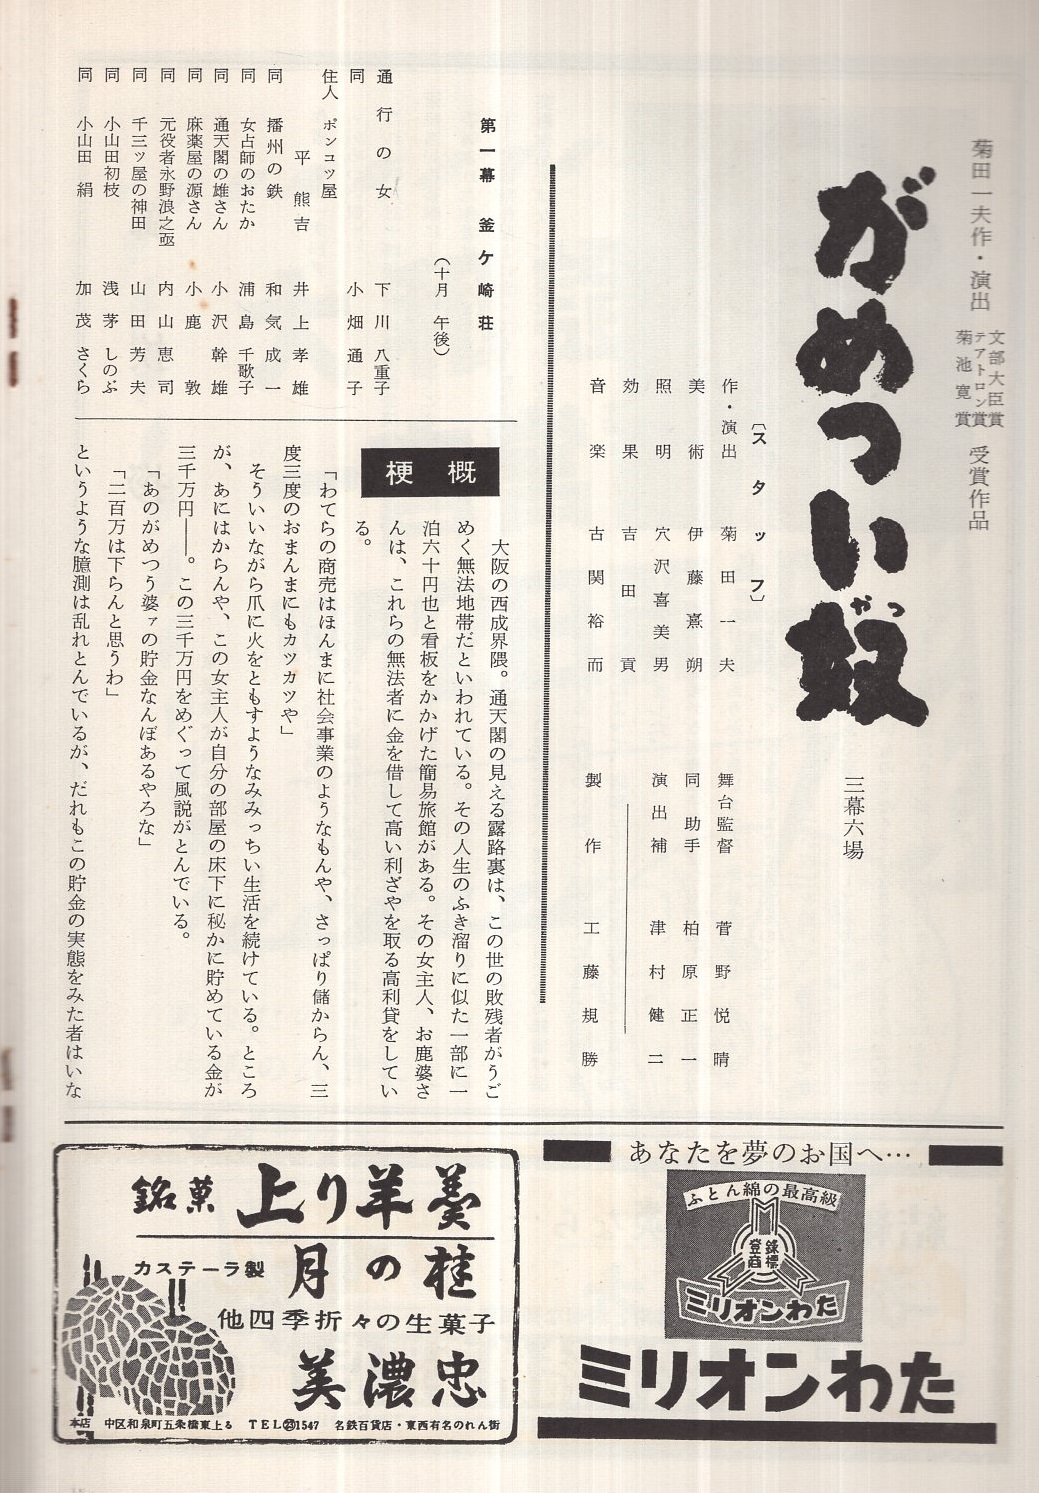 菊田一夫作・演出
文部大臣賞
テアトロン賞
菊池寛賞
受賞作品
がめつい奴
やつ
三幕六場
〔スタッフ〕
作・演出 菊田一夫
美術 伊藤熹朔
照明 穴沢喜美男
効果 吉田貢
音楽 古関裕而
舞台監督 菅野悦晴
同助手 柏原正一
演出補 津村健二
製作 工藤規勝
第一幕 釜ケ崎荘
(十月 午後)
通行の女 下川八重子
同 小畑通子
住人 ポンコツ屋
平熊吉 井上孝雄
同 播州の鉄 和気成一
同 女占師のおたか 浦島千歌子
同 通天閣の雄さん 小沢幹雄
同 麻薬屋の源さん 小鹿敦
同 元役者永野浪之亟 内山恵司
同 千三ッ屋の神田 山田芳夫
同 小山田初枝 浅茅しのぶ
同 小山田絹 加茂さくら
梗概
大阪の西成界隈。通天閣の見える露路裏は、この世の敗残者がうご
めく無法地帯だといわれている。その人生のふき溜りに似た一部に一
泊六十円也と看板をかかげた簡易旅館がある。その女主人、お鹿婆さ
んは、これらの無法者に金を借して高い利ざやを取る高利貸をしてい
る。
「わてらの商売はほんまに社会事業のようなもんや、さっぱり儲からん、三
度三度のおまんまにもカツカツや」
そういいながら爪に火をともすようなみみっちい生活を続けている。ところ
が、あにはからんや、この女主人が自分の部屋の床下に秘かに貯めている金が
三千万円――。この三千万円をめぐって風説がとんでいる。
「あのがめつう婆ァの貯金なんぼあるやろな」
「二百万は下らんと思うわ」
というような臆測は乱れとんでいるが、だれもこの貯金の実態をみた者はいな
あなたを夢のお国へ…
ふとん綿の最高級
登録商標
ミリオンわた
ミリオンわた
銘菓 上り羊羹
カステーラ製 月の桂
他四季折々の生菓子
美濃忠
本店 中区和泉町五条橋東上る TEL㉓1547 名鉄百貨店・東西有名のれん街